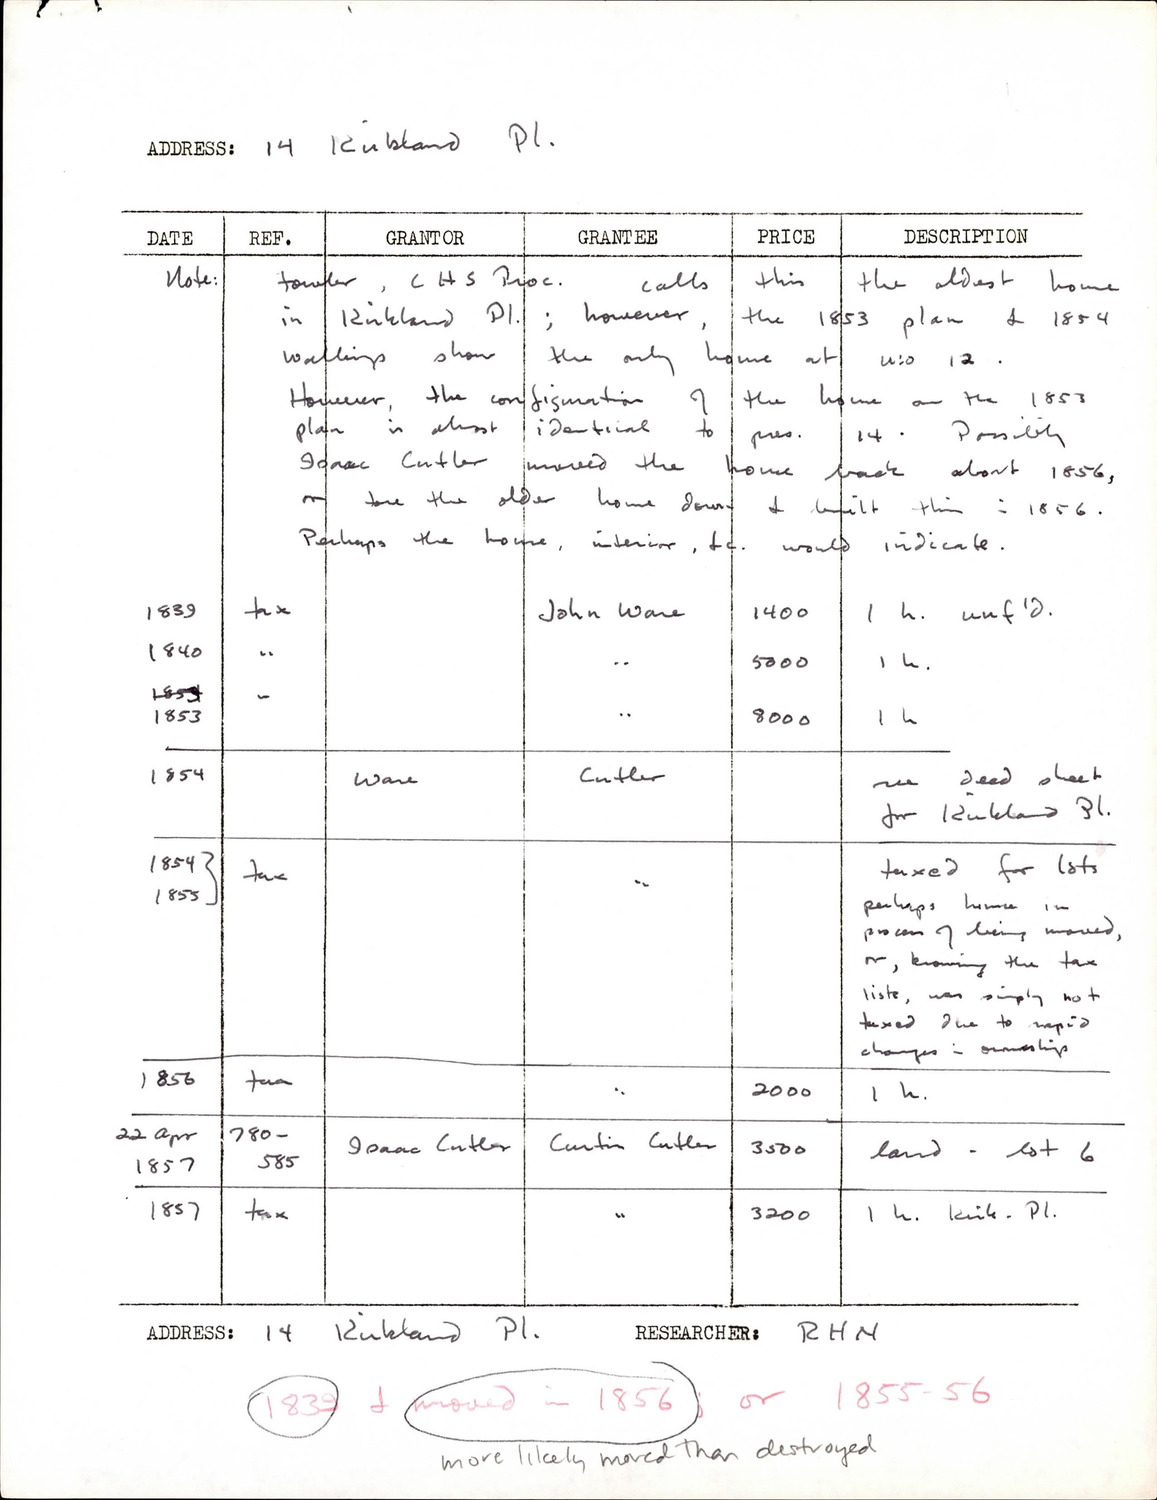 ADDRESS: 14 Kirkland Pl.
DATE REF. GRANTOR GRANTEE PRICE DESCRIPTION
Note: Fowler, CHS Proc. calls this the oldest house
in Kirkland Pl.; however, the 1853 plan & 1854
Wallings show the only house at no 12.
However, the configuration of the house on the 1853
plan is almost identical to pres. 14. Possibly
Isaac Cutler moved the house back about 1856,
or tore the older house down & built this in 1856.
Perhaps the house, interior, &c. would indicate.
1839 tax John Ware 1400 1 h. unf'd.
1840 " " 5000 1 h.
1853 " " 8000 1 h
1854 Ware Cutler see deed sheet
for Kirkland Pl.
1854 } tax " taxed for lots
1855 perhaps house in
process of being moved,
or, knowing the tax
lists, was simply not
taxed due to rapid
changes in ownership
1856 tax " 2000 1 h.
22 Apr 780- Isaac Cutler Curtis Cutler 3500 land - lot 6
1857 585
1857 tax " 3200 1 h. Kirk. Pl.
ADDRESS: 14 Kirkland Pl. RESEARCHER: RHN
1839 & moved in 1856; or 1855-56
more likely moved than destroyed